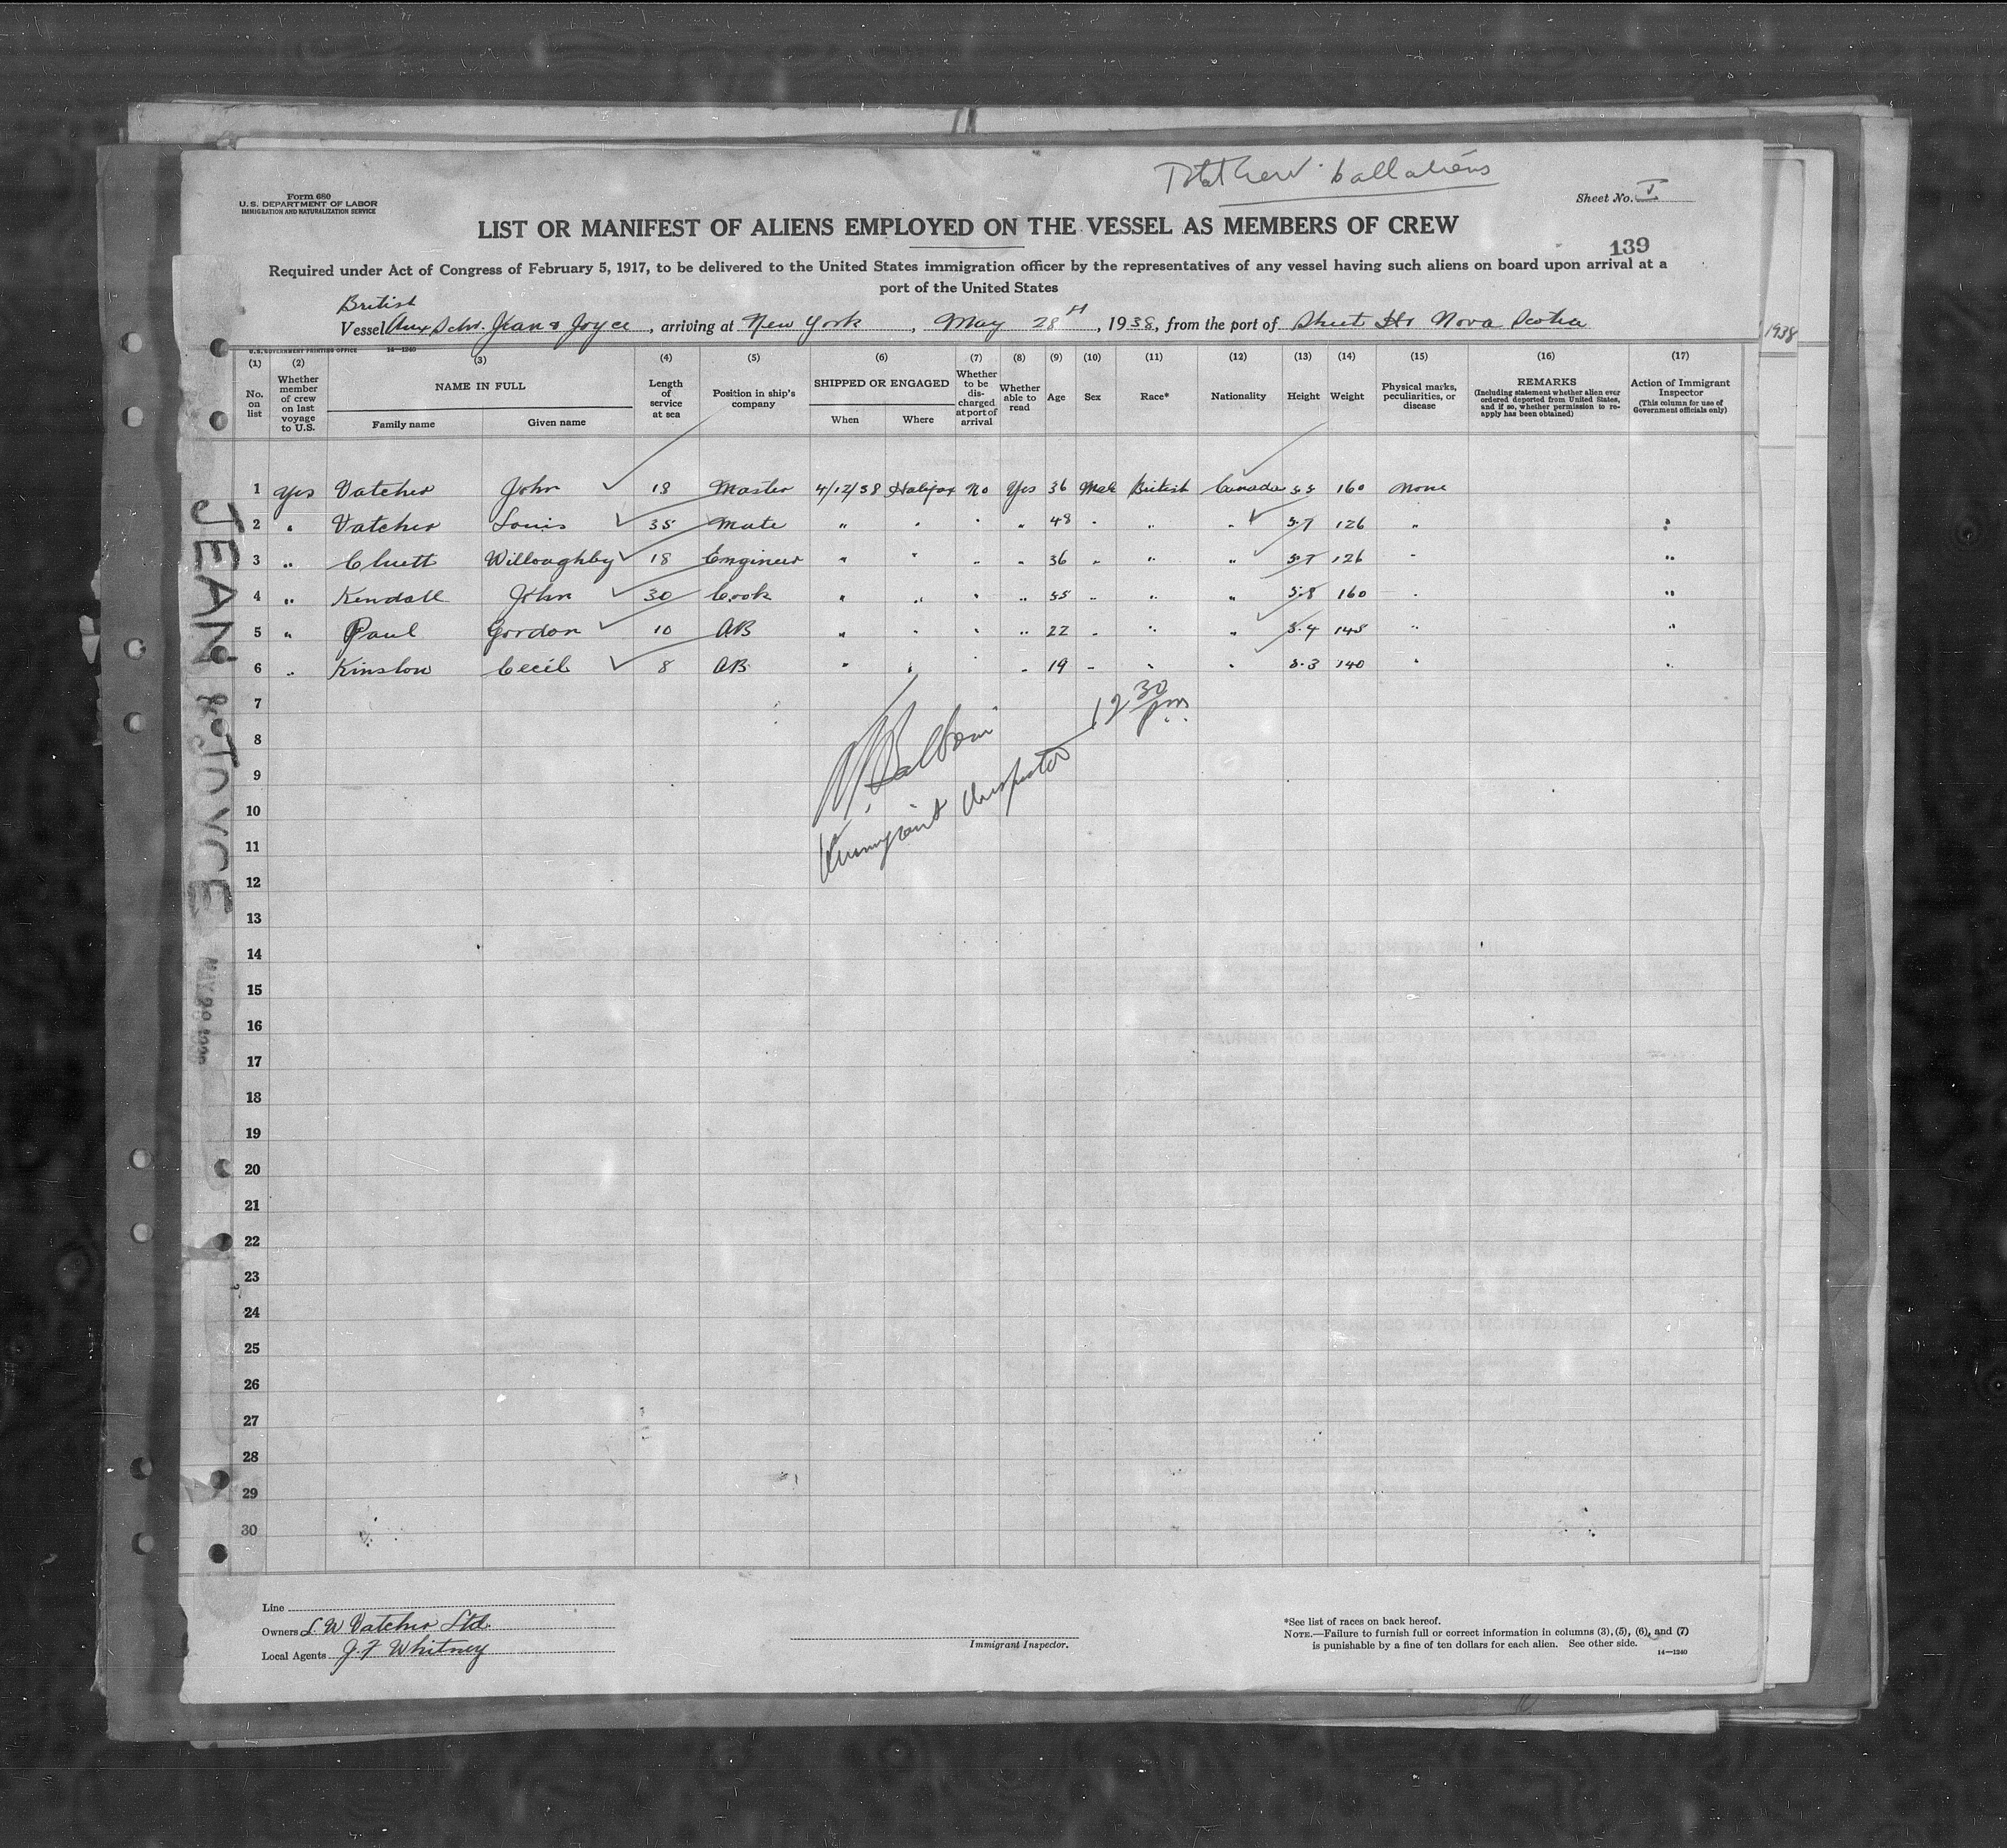 Form 680
U. S. DEPARTMENT OF LABOR
IMMIGRATION AND NATURALIZATION SERVICE
Sheet No. I
LIST OR MANIFEST OF ALIENS EMPLOYED ON THE VESSEL AS MEMBERS OF CREW
139
Required under Act of Congress of February 5, 1917, to be delivered to the United States immigration officer by the representatives of any vessel having such aliens on board upon arrival at a
port of the United States
British
Vessel Aux Schr. Jean & Joyce, arriving at New York, May 28, 1938, from the port of Sheet Hr Nova Scotia
1938
U. S. GOVERNMENT PRINTING OFFICE 14—1240
(1) (2) (3) (4) (5) (6) (7) (8) (9) (10) (11) (12) (13) (14) (15) (16) (17)
No. on list
Whether member of crew on last voyage to U.S.
NAME IN FULL
Family name Given name
Length of service at sea
Position in ship's company
SHIPPED OR ENGAGED
When Where
Whether to be discharged at port of arrival
Whether able to read
Age Sex Race* Nationality Height Weight
Physical marks, peculiarities, or disease
REMARKS
(Including statement whether alien ever ordered deported from United States, and if so, whether permission to reapply has been obtained)
Action of Immigrant Inspector
(This column for use of Government officials only)
1 Yes Vatcher John 18 Master 4/12/38 Halifax No Yes 36 Male British Canada 5.5 160 None
2 " Vatcher Louis 35 Mate " " " " 48 " " " 5.7 126 " "
3 " Chuett Willoughby 18 Engineer " " " " 36 " " " 5.7 126 " "
4 " Kendall John 30 Cook " " " " 55 " " " 5.8 160 " "
5 " Paul Gordon 10 AB " " " " 22 " " " 5.4 145 " "
6 " Kinslow Cecil 8 AB " " " " 19 " " " 5.3 140 " "
7
8
9
10
11
12
13
14
15
16
17
18
19
20
21
22
23
24
25
26
27
28
29
30
12 30 pm
Immigrant Inspector
JEAN & JOYCE
Line
Owners L W Vatcher Ltd.
Local Agents J. F Whitney
Immigrant Inspector.
*See list of races on back hereof.
NOTE.—Failure to furnish full or correct information in columns (3), (5), (6), and (7)
is punishable by a fine of ten dollars for each alien. See other side.
14—1240